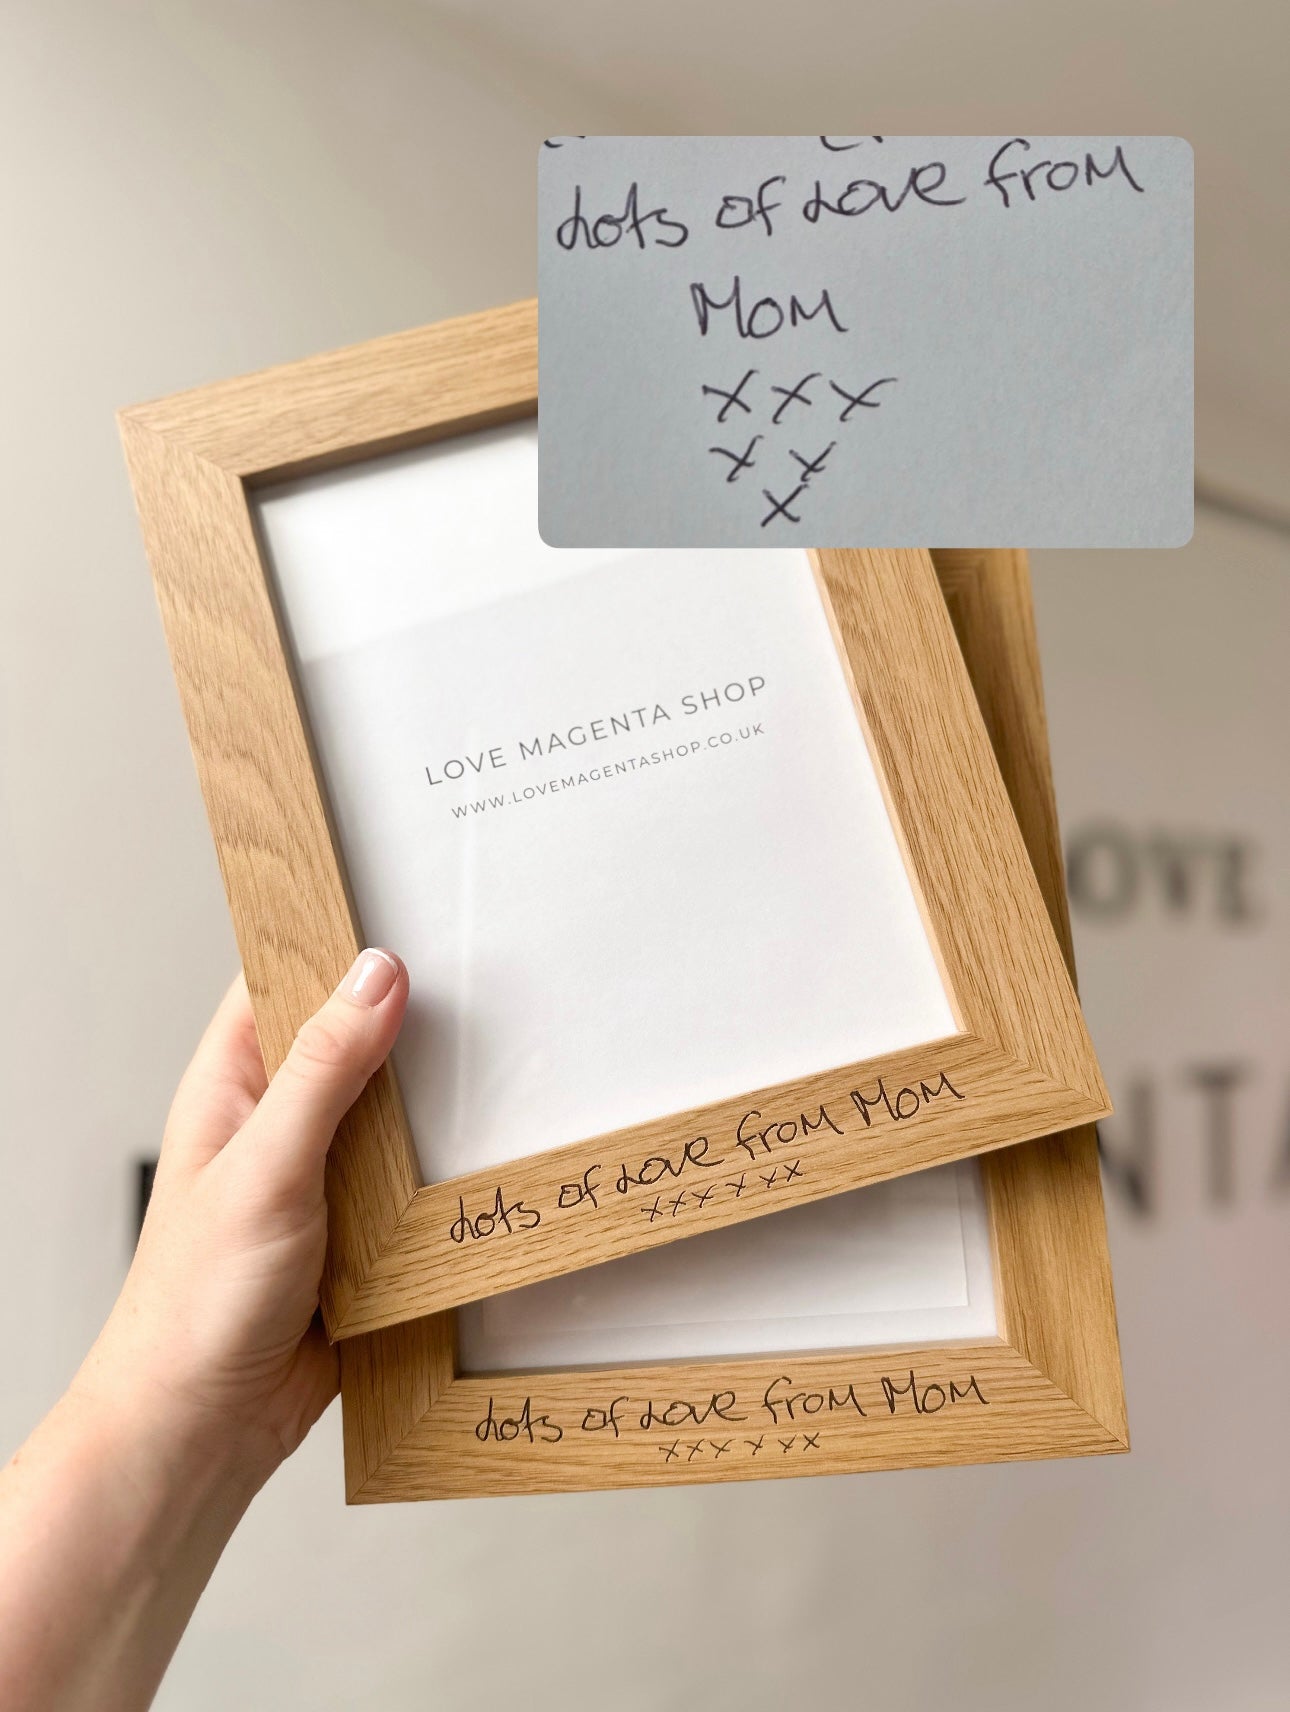 Lots of Love from
Mom
x x x
x x
x
LOVE MAGENTA SHOP
WWW.LOVEMAGENTASHOP.CO.UK
Lots of Love from Mom
x x x x x x
Lots of Love from Mom
x x x x x x